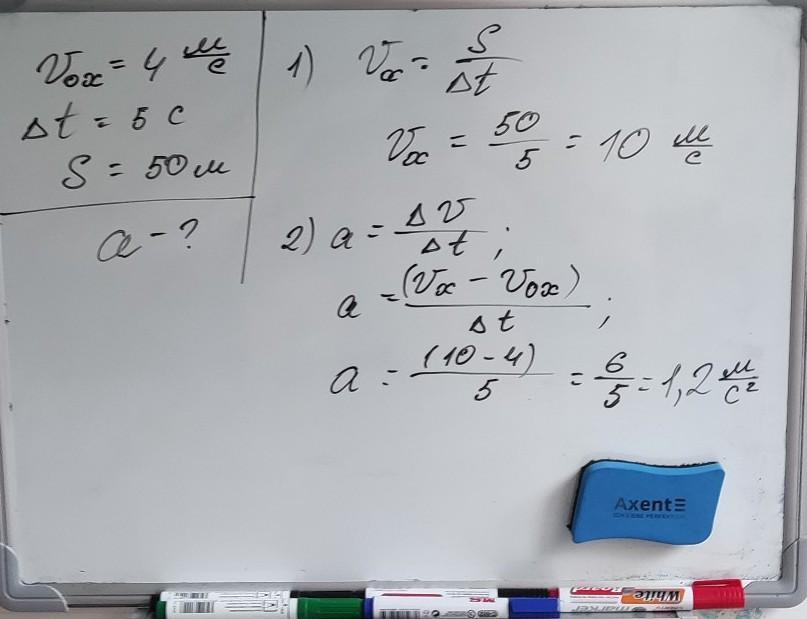 v₀ₓ = 4 м/с
Δt = 5 с
S = 50 м
a - ?
1) vₓ = S/Δt
vₓ = 50/5 = 10 м/с
2) a = Δv/Δt ;
a = (vₓ - v₀ₓ)/Δt ;
a = (10 - 4)/5 = 6/5 = 1,2 м/с²
Axent
White Board
marker